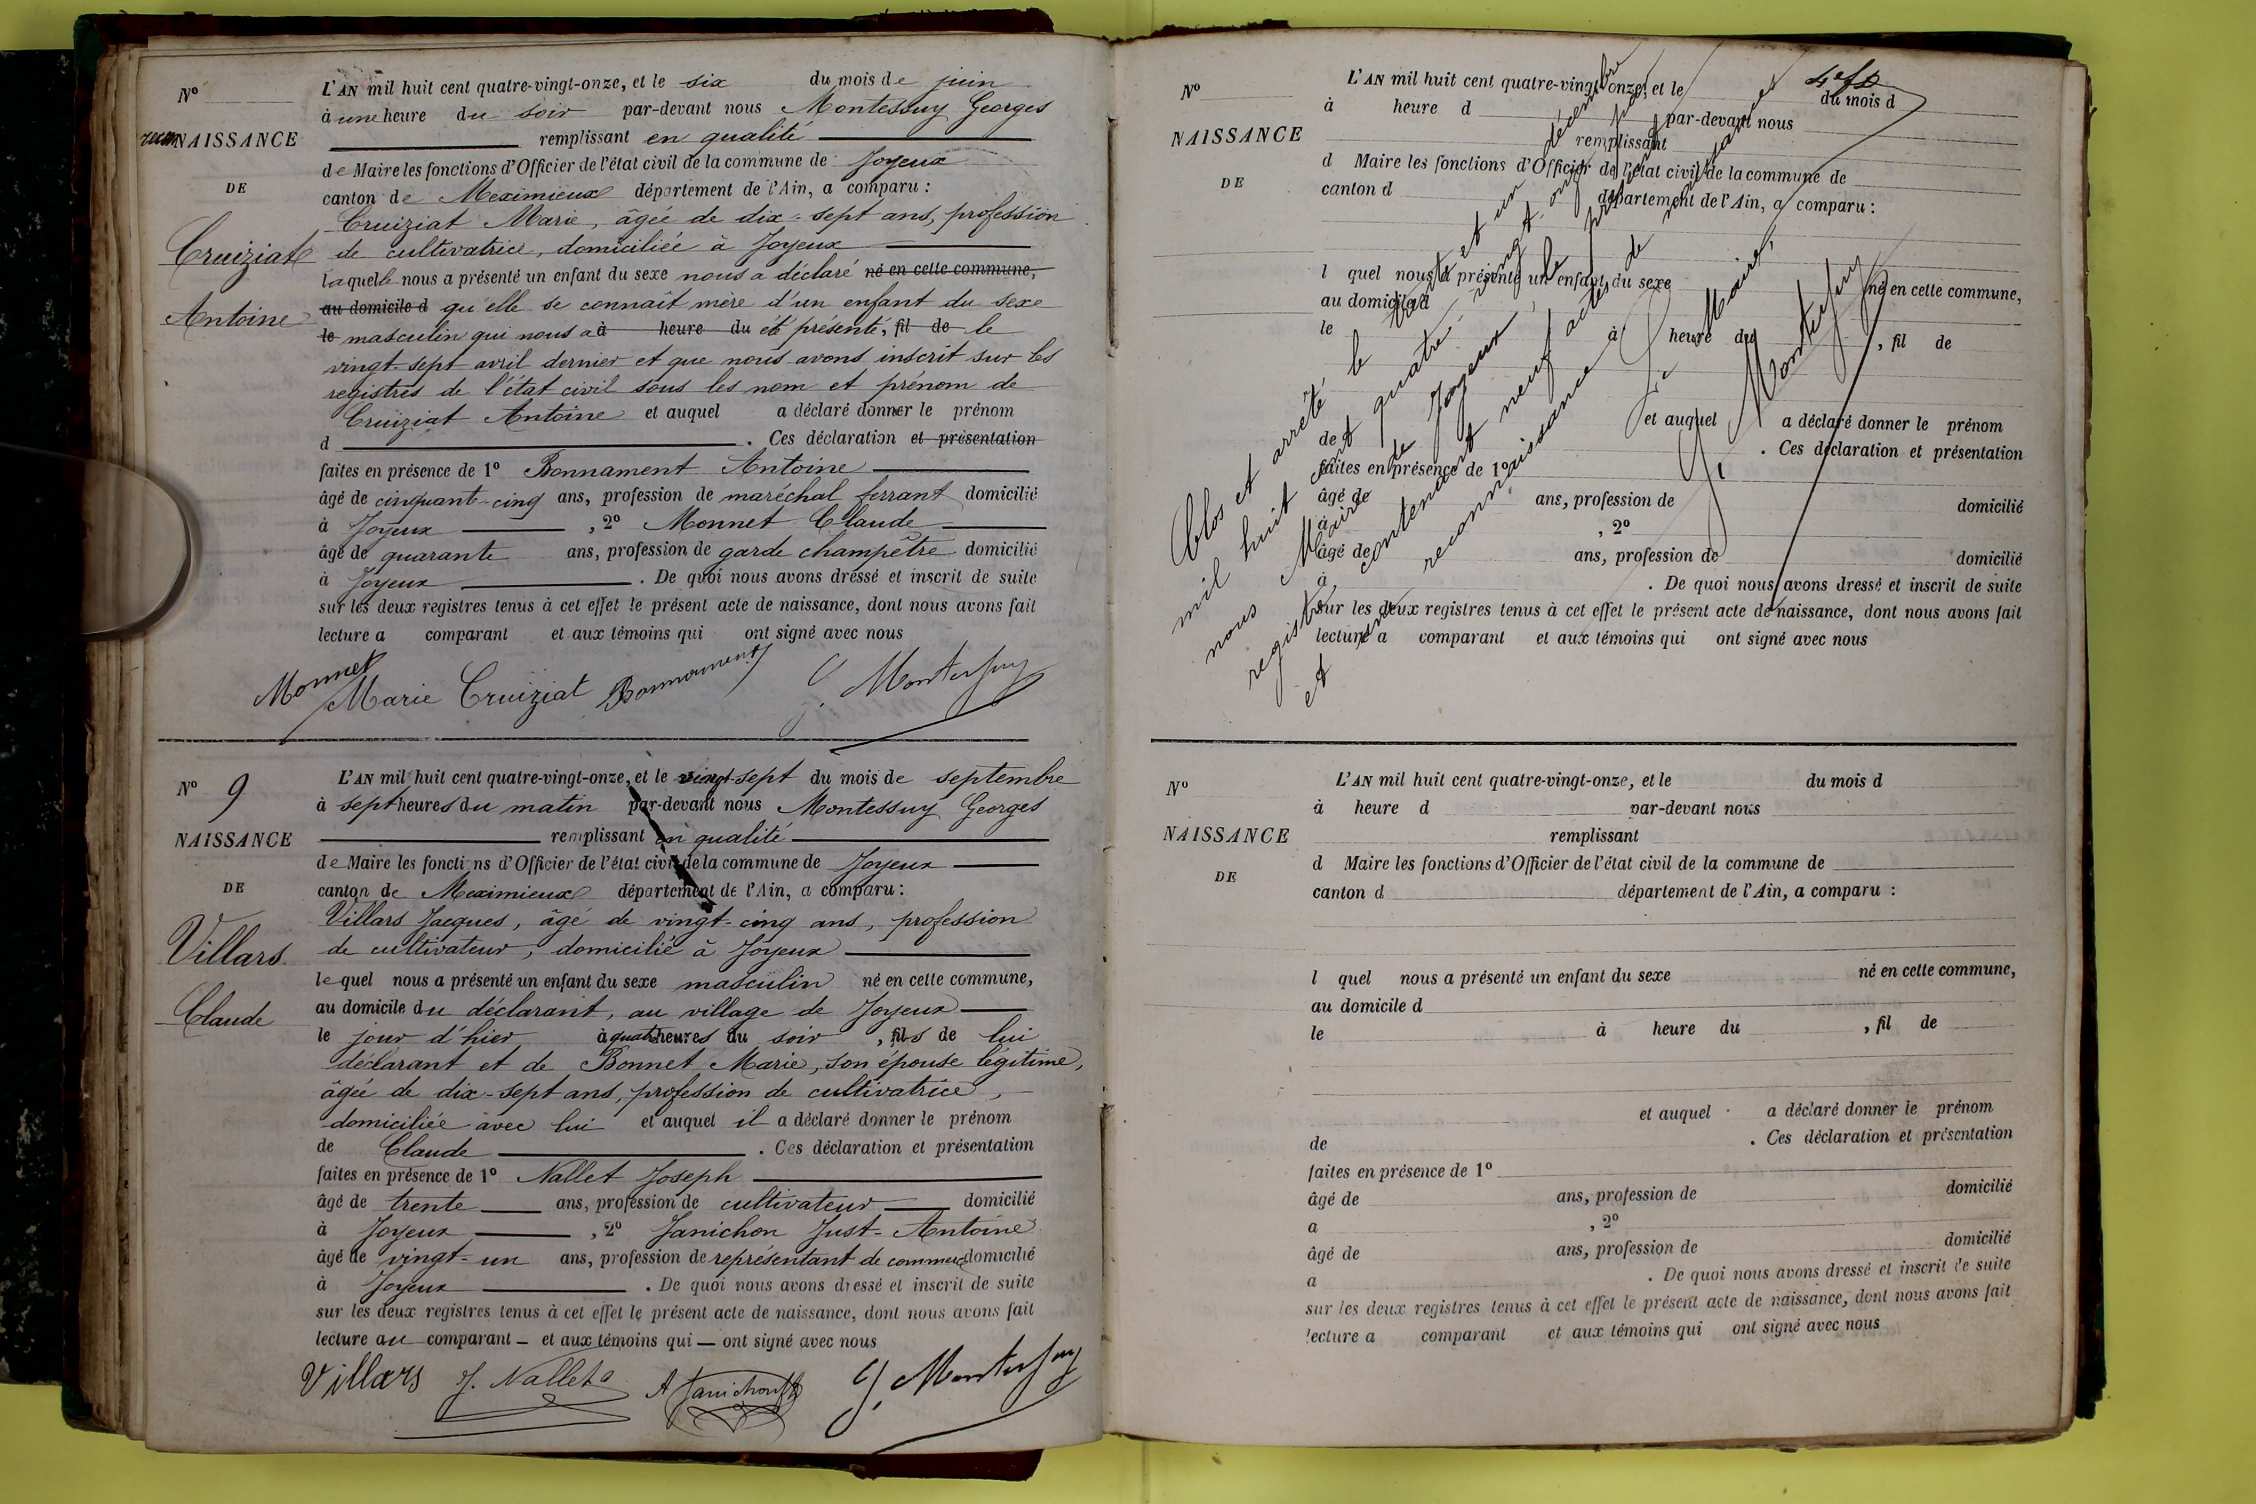 Nº
recon NAISSANCE
DE
Cruiziat
Antoine
L'AN mil huit cent quatre-vingt-onze, et le six du mois de juin
à une heure du soir par-devant nous Montessuy Georges
remplissant en qualité
de Maire les fonctions d'Officier de l'état civil de la commune de Joyeux
canton de Meximieux département de l'Ain, a comparu :
Cruiziat Marie, âgée de dix-sept ans, profession
de cultivatrice, domiciliée à Joyeux
laquelle nous a présenté un enfant du sexe nous a déclaré né en cette commune,
au domicile d qu'elle se connaît mère d'un enfant du sexe
le masculin qui nous a à heure du été présenté, fil de le
vingt-sept avril dernier et que nous avons inscrit sur les
registres de l'état civil sous les nom et prénom de
Cruiziat Antoine et auquel a déclaré donner le prénom
d . Ces déclaration et présentation
faites en présence de 1º Bonnament Antoine
âgé de cinquante-cinq ans, profession de maréchal ferrant domicilié
à Joyeux , 2º Monnet Claude
âgé de quarante ans, profession de garde champêtre domicilié
à Joyeux . De quoi nous avons dressé et inscrit de suite
sur les deux registres tenus à cet effet le présent acte de naissance, dont nous avons fait
lecture a comparant et aux témoins qui ont signé avec nous
Monnet Marie Cruiziat Bonnament G. Montessuy
Nº 9
NAISSANCE
DE
Villars
Claude
L'AN mil huit cent quatre-vingt-onze, et le vingt-sept du mois de septembre
à sept heures du matin par-devant nous Montessuy Georges
remplissant en qualité
de Maire les fonctions d'Officier de l'état civil de la commune de Joyeux
canton de Meximieux département de l'Ain, a comparu :
Villars Jacques, âgé de vingt-cinq ans, profession
de cultivateur, domicilié à Joyeux
lequel nous a présenté un enfant du sexe masculin né en cette commune,
au domicile du déclarant, au village de Joyeux
le jour d'hier à quatre heures du soir , fils de lui
déclarant et de Bonnet Marie, son épouse légitime,
âgée de dix-sept ans, profession de cultivatrice,
domiciliée avec lui et auquel il a déclaré donner le prénom
de Claude . Ces déclaration et présentation
faites en présence de 1º Nallet Joseph
âgé de trente ans, profession de cultivateur domicilié
à Joyeux , 2º Janichon Just-Antoine
âgé de vingt-un ans, profession de représentant de commerce domicilié
à Joyeux . De quoi nous avons dressé et inscrit de suite
sur les deux registres tenus à cet effet le présent acte de naissance, dont nous avons fait
lecture au comparant et aux témoins qui ont signé avec nous
Villars J. Nallet A Janichon G. Montessuy
Nº
NAISSANCE
DE
L'AN mil huit cent quatre-vingt-onze, et le du mois d
à heure d par-devant nous
remplissant
d Maire les fonctions d'Officier de l'état civil de la commune de
canton d département de l'Ain, a comparu :
l quel nous a présenté un enfant du sexe né en cette commune,
au domicile d
le à heure du , fil de
et auquel a déclaré donner le prénom
de . Ces déclaration et présentation
faites en présence de 1º
âgé de ans, profession de domicilié
à , 2º
âgé de ans, profession de domicilié
à . De quoi nous avons dressé et inscrit de suite
sur les deux registres tenus à cet effet le présent acte de naissance, dont nous avons fait
lecture a comparant et aux témoins qui ont signé avec nous
Clos et arrêté le trente et un décembre
mil huit cent quatre-vingt-onze par
nous Maire de Joyeux, le présent
registre contenant neuf actes de naissances
et une reconnaissance
Le Maire,
G. Montessuy
Nº
NAISSANCE
DE
L'AN mil huit cent quatre-vingt-onze, et le du mois d
à heure d par-devant nous
remplissant
d Maire les fonctions d'Officier de l'état civil de la commune de
canton d département de l'Ain, a comparu :
l quel nous a présenté un enfant du sexe né en cette commune,
au domicile d
le à heure du , fil de
et auquel a déclaré donner le prénom
de . Ces déclaration et présentation
faites en présence de 1º
âgé de ans, profession de domicilié
a , 2º
âgé de ans, profession de domicilié
a . De quoi nous avons dressé et inscrit de suite
sur les deux registres tenus à cet effet le présent acte de naissance, dont nous avons fait
lecture a comparant et aux témoins qui ont signé avec nous